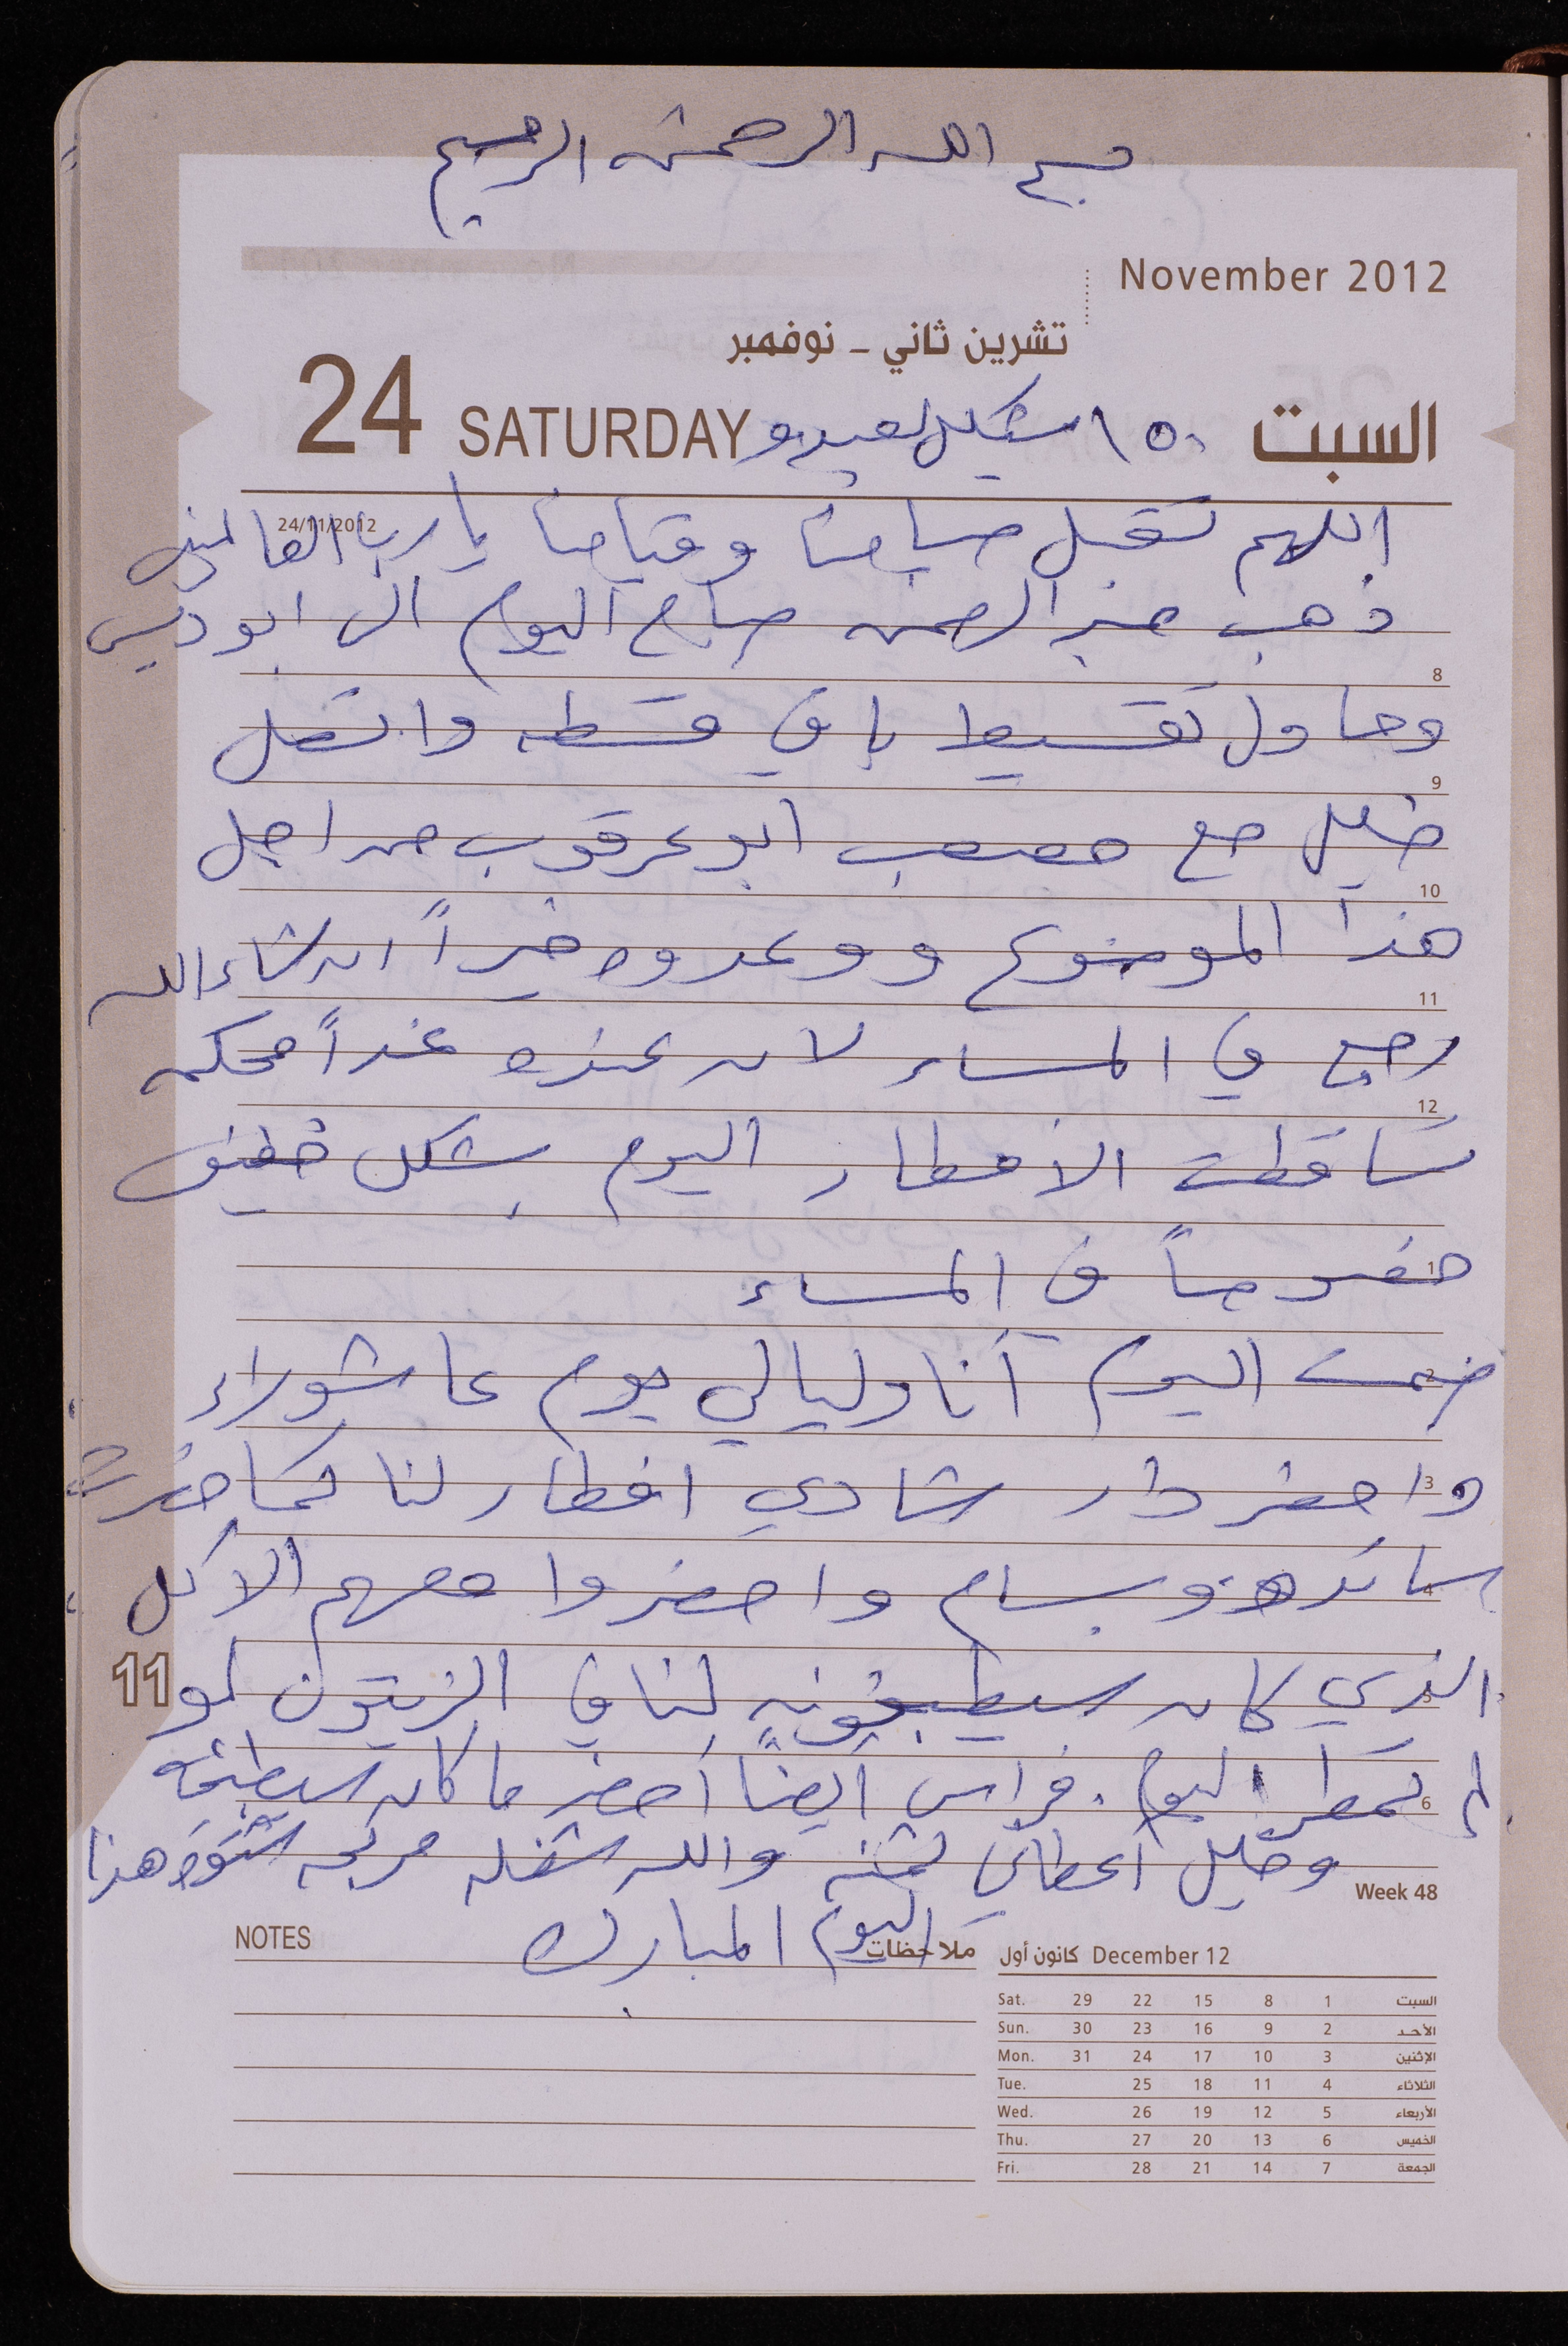 بسم الله الرحمن الرحيم
November 2012
تشرين ثاني - نوفمبر
السبت ١٥٠ شيكل لعبيدو SATURDAY 24
24/11/2012
اللهم تقبل صيامنا وقيامنا يا رب العالمين
ذهب عبد الرحمن صباح اليوم الى ابو ديس
8
وحاول تقسيط باقي قسطه واتصل
9
خليل مع مصعب ابو عرقوب من اجل
10
هذا الموضوع ووعدوه خيراً ان شاء الله
11
رجع في المساء لان عنده غداً محكمه
12
تساقطت الامطار اليوم بشكل خفيف
1
خصوصاً في المساء
2
صمت اليوم أنا وليالي يوم عاشوراء
3
واحضر دار شادي افطار لنا كما حضرت
4
سائده وبسام واحضروا معهم الأكل
5
الذي كان سيطبخونه لنا في الزيتون لو
11
6
لم تمطر اليوم. فراس أيضاً أحضر ما كان سيطبخه
وخليل أعطاني ثمنه والله شغله مربحه هذا
Week 48
اليوم المبارك
NOTES ملاحظات
كانون أول December 12
Sat. 29 22 15 8 1 السبت
Sun. 30 23 16 9 2 الأحد
Mon. 31 24 17 10 3 الإثنين
Tue. 25 18 11 4 الثلاثاء
Wed. 26 19 12 5 الأربعاء
Thu. 27 20 13 6 الخميس
Fri. 28 21 14 7 الجمعة